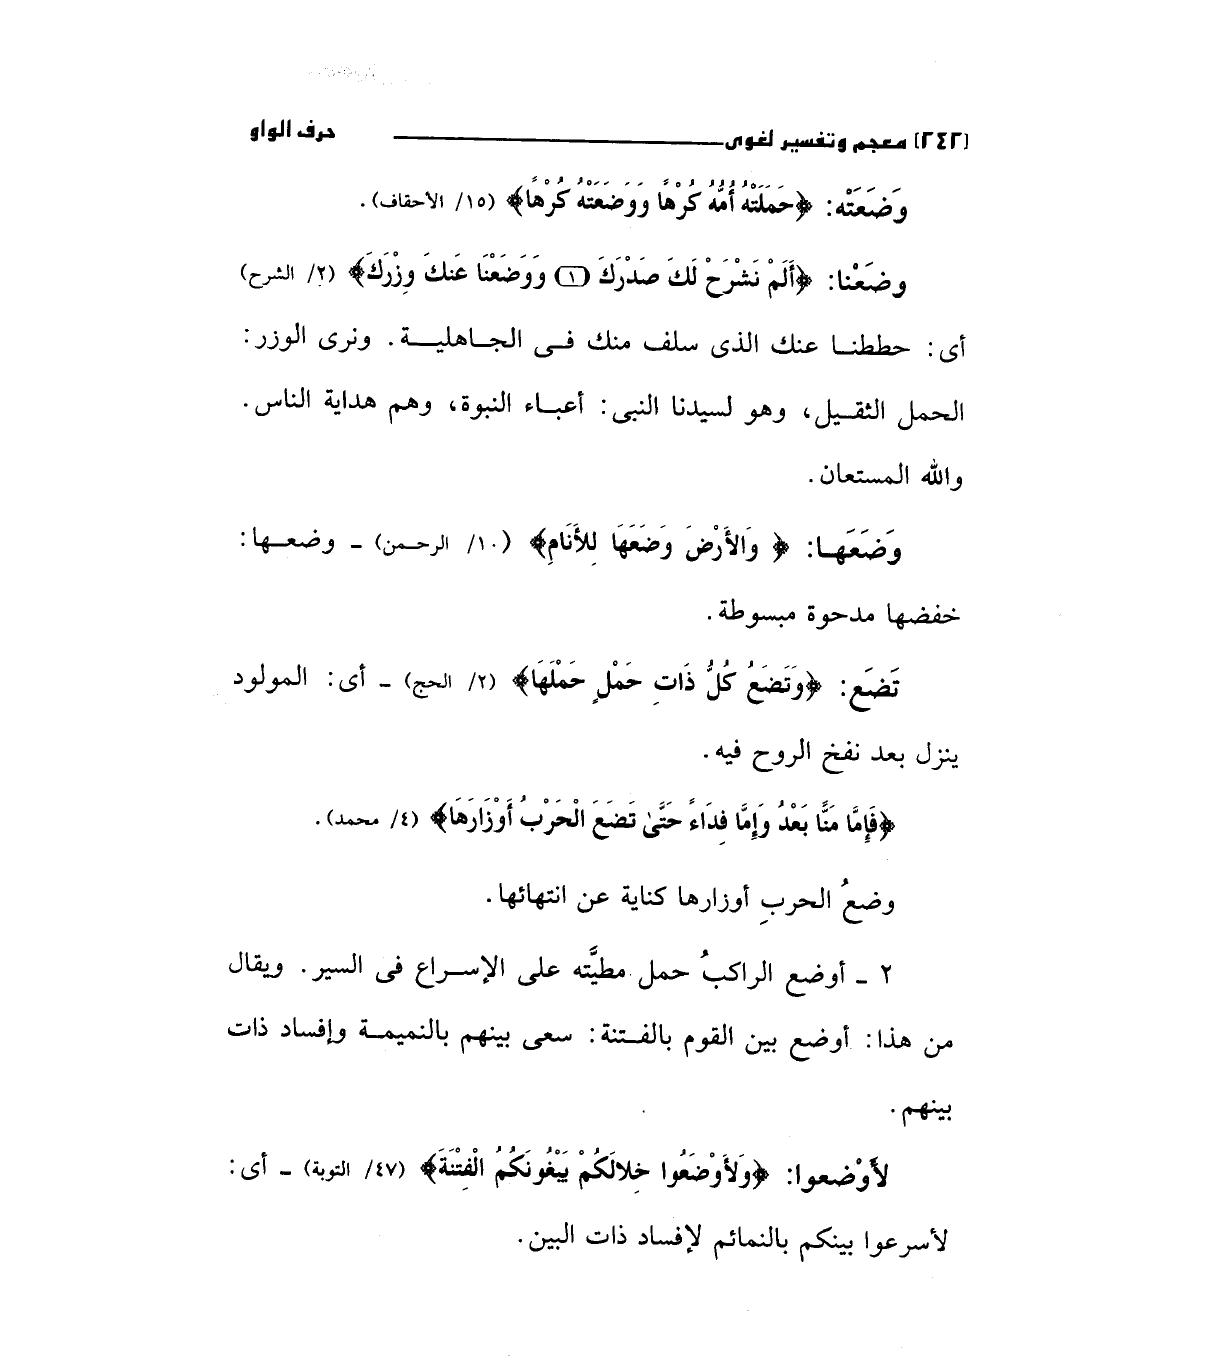 [٢٤٢] معجم وتفسير لغوى حرف الواو
وَضَعَتْه: ﴿حَمَلَتْهُ أُمُّهُ كُرْهًا وَوَضَعَتْهُ كُرْهًا﴾ (١٥/ الأحقاف).
وضَعْنا: ﴿أَلَمْ نَشْرَحْ لَكَ صَدْرَكَ (١) وَوَضَعْنَا عَنكَ وِزْرَكَ﴾ (٢/ الشرح)
أى: حططنا عنك الذى سلف منك فى الجاهلية. ونرى الوزر:
الحمل الثقيل، وهو لسيدنا النبى: أعباء النبوة، وهم هداية الناس.
والله المستعان.
وَضَعَها: ﴿ وَالأَرْضَ وَضَعَهَا لِلأَنَامِ﴾ (١٠/ الرحمن) ـ وضعها:
خفضها مدحوة مبسوطة.
تَضَع: ﴿وَتَضَعُ كُلُّ ذَاتِ حَمْلٍ حَمْلَهَا﴾ (٢/ الحج) ـ أى: المولود
ينزل بعد نفخ الروح فيه.
﴿فَإِمَّا مَنًّا بَعْدُ وَإِمَّا فِدَاءً حَتَّىٰ تَضَعَ الْحَرْبُ أَوْزَارَهَا﴾ (٤/ محمد).
وضعُ الحربِ أوزارها كناية عن انتهائها.
٢ ـ أوضع الراكبُ حمل مطيَّته على الإسراع فى السير. ويقال
من هذا: أوضع بين القوم بالفتنة: سعى بينهم بالنميمة وإفساد ذات
بينهم.
لأَوْضعوا: ﴿وَلأَوْضَعُوا خِلالَكُمْ يَبْغُونَكُمُ الْفِتْنَةَ﴾ (٤٧/ التوبة) ـ أى:
لأسرعوا بينكم بالنمائم لإفساد ذات البين.